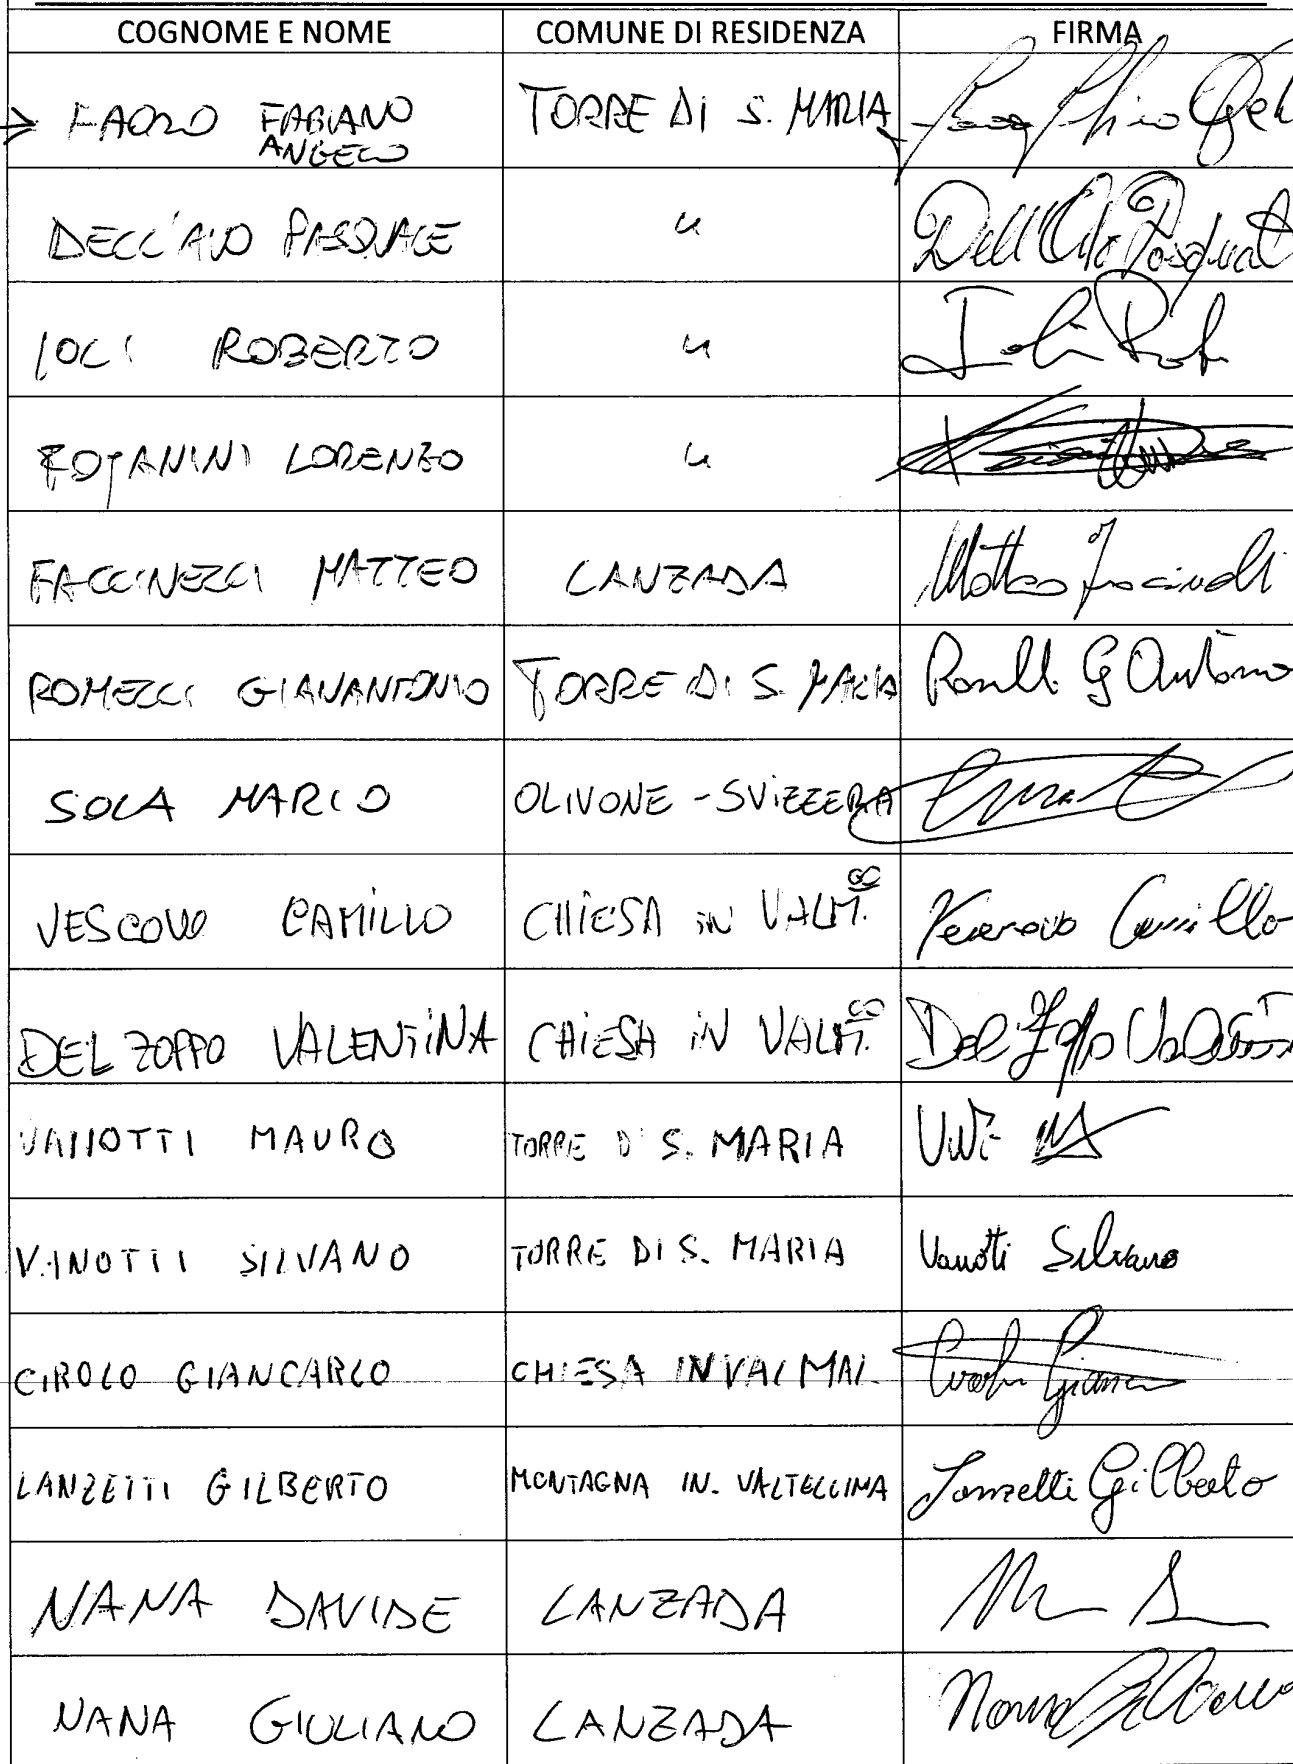 COGNOME E NOME COMUNE DI RESIDENZA FIRMA
FABIANO TORRE DI S. MARIA
ANGELO
DELL'AVO PASQUALE " Dell'Avo Pasquale
IOLI ROBERTO " Ioli Rob
LORENZO "
FACCINELLI MATTEO LANZADA Matteo Faccinelli
ROMELLI GIANANTONIO TORRE DI S. MARIA Romelli G Antonio
SOLA MARIO OLIVONE - SVIZZERA
VESCOVO CAMILLO CHIESA IN VALM.CO Vescovo Camillo
DEL ZOPPO VALENTINA CHIESA IN VALM.CO Del Zoppo Valentina
VANOTTI MAURO TORRE DI S. MARIA
VANOTTI SILVANO TORRE DI S. MARIA Vanotti Silvano
CIROLO GIANCARLO CHIESA IN VALMAL.
LANZETTI GILBERTO MONTAGNA IN. VALTELLINA Lanzetti Gilberto
NANA DAVIDE LANZADA
NANA GIULIANO LANZADA Nana